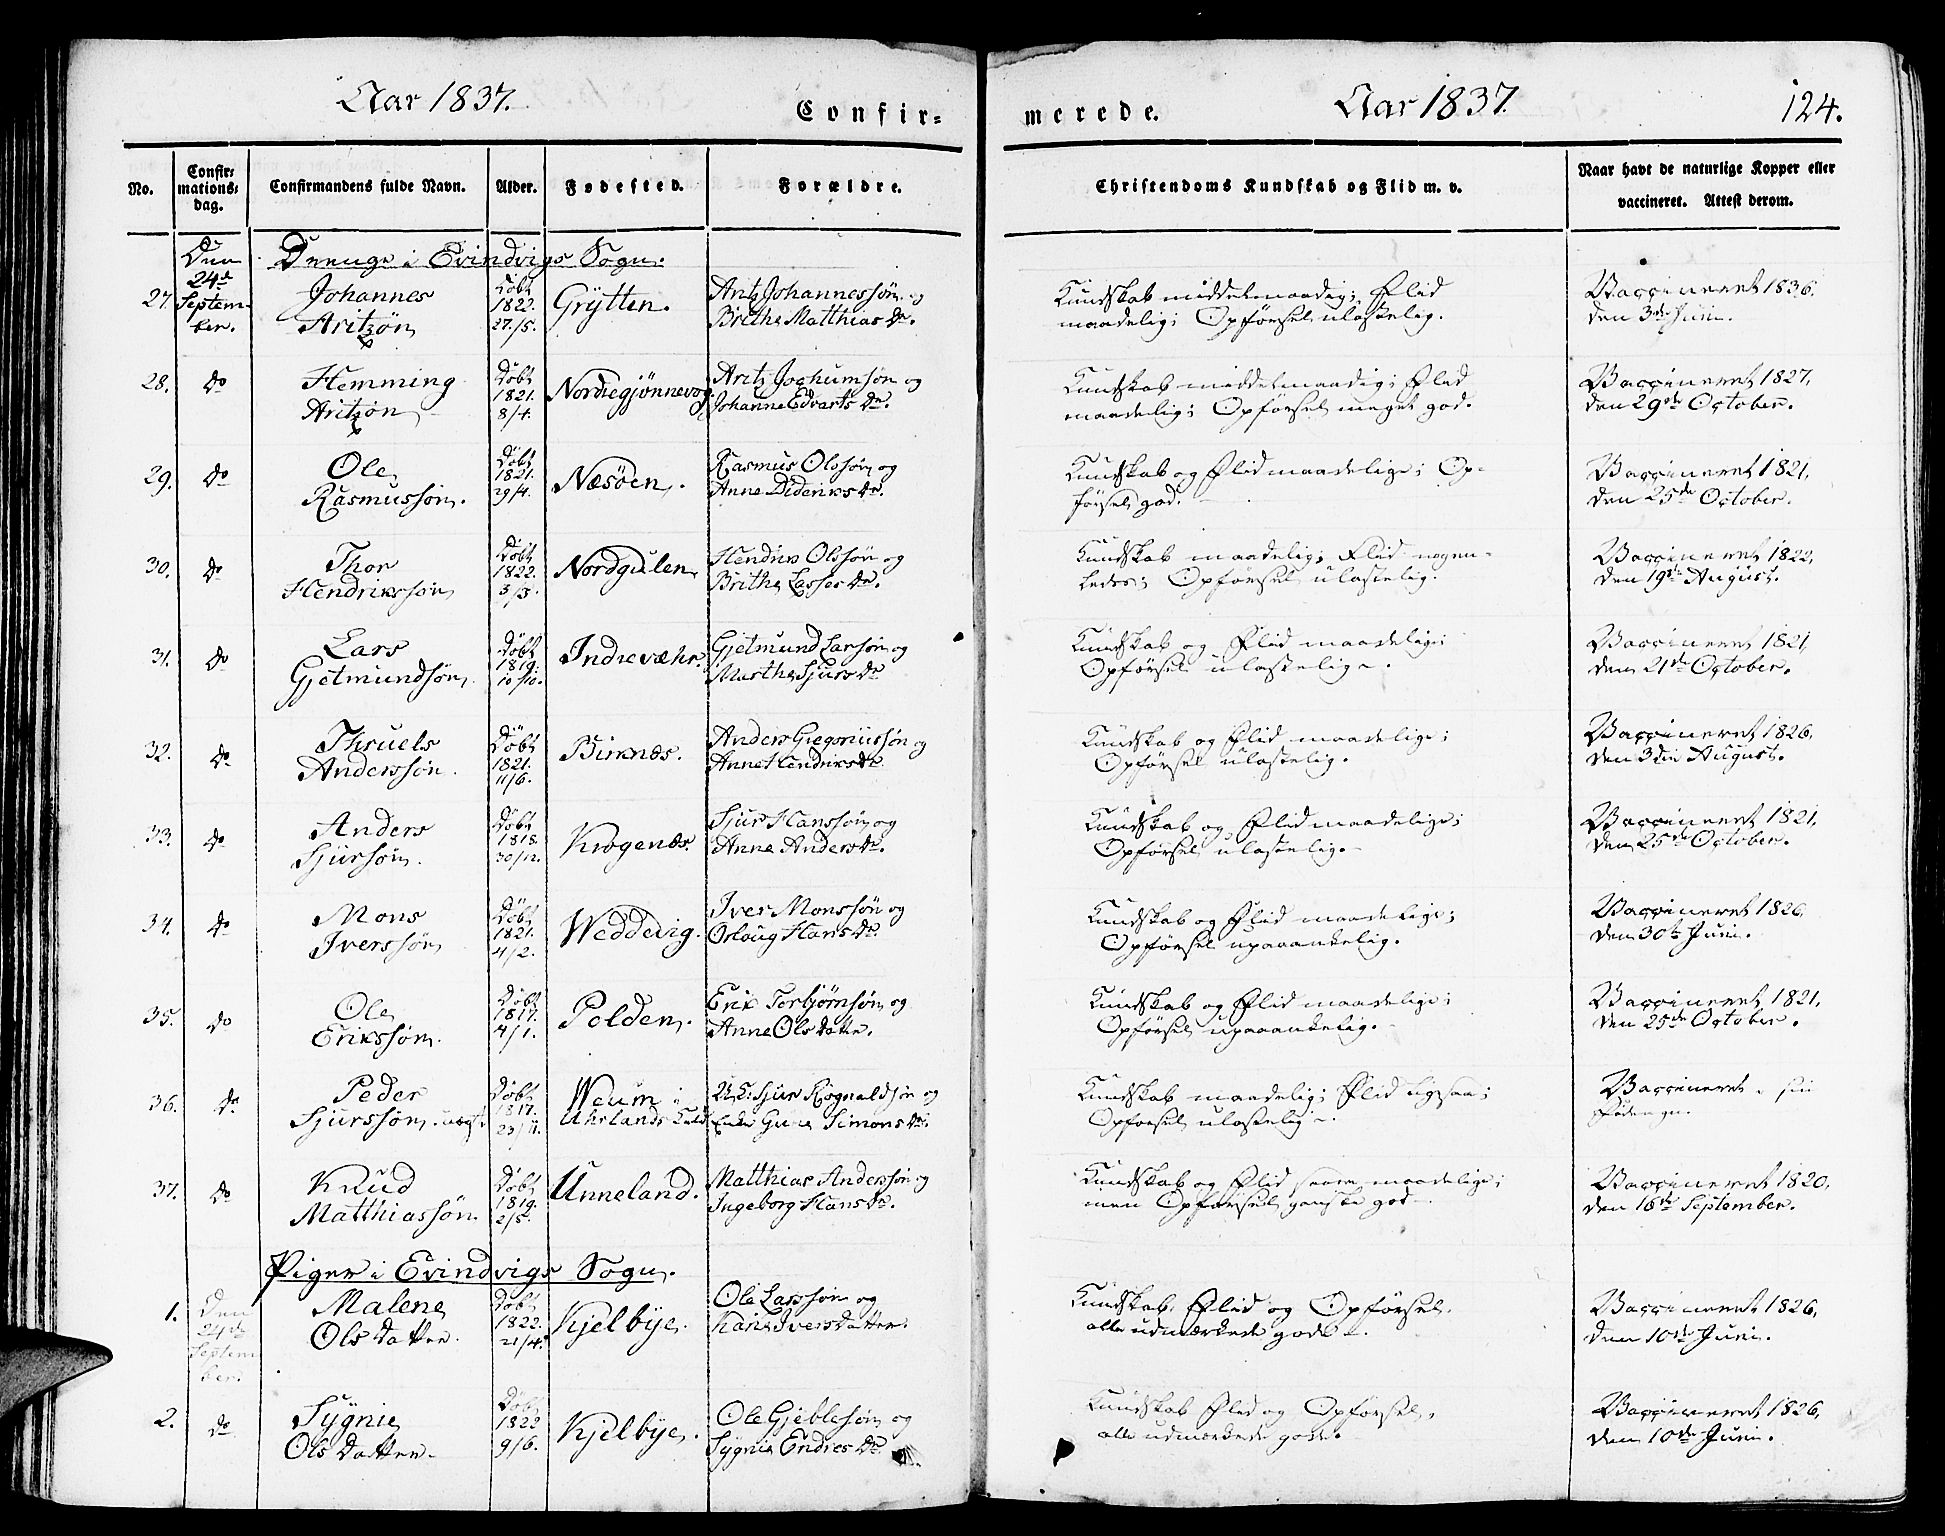 Aar 1837.
Confir-
merede.
Aar 1837
124.
No.
Confir-
mations-
dag.
Confirmandens fulde Navn.
Alder.
Fødested.
Forældre.
Christendoms Kundskab og Flid m. v.
Naar havt de naturlige Kopper eller
vaccineret. Attest derom.
Den
24de
Septem-
ber.
Drenge i Evindvigs Sogn.
27.
Johannes
Aritzøn
Døbt
1822.
27./5.
Grytten.
Aritz Johannessøn og
Brithe Matthias Dr.
Kundskab middelmaadig; Flid
maadelig; Opførsel ulastelig.
Vaccineret 1836.
den 3de Juni.
28.
Do
Hemming
Aritzøn
Døbt
1821.
8/4.
Aritz Jochumsøn og
Johanne Edvarts Dr.
Kundskab middelmaadig; Flid
maadelig; Opførsel meget god.
Vaccineret 1827,
den 29de October.
29.
Do
Ole
Rasmussøn.
Døbt
1821.
29/4.
Næsøen.
Rasmus Olssøn og
Anne Dideriks Dr.
Kundskab og Flid maadelige; Op-
førsel god.
Vaccineret 1821,
den 25de October.
30.
Do
Thor
Hendrikssøn
Døbt
1822.
3/3.
Nordgulen.
Hendrik Olssøn og
Brithe Lasses Dr.
Kundskab maadelig; Flid nogen-
ledes; Opførsel ulastelig.
Vaccineret 1822,
den 19de August.
31.
Do
Lars
Gjetmundsøn
Døbt
1819.
10/10.
Indrevæhr.
Gjetmund Larsøn og
Marthe Sjurs Dr
Kundskab og Flid maadelige;
Opførsel ulastelig.
Vaccineret 1821,
den 21de October.
32.
Do
Thruels
Anderssøn.
Døbt
1821.
11/6.
Birknæs.
Anders Gregoriussøn og
Anne Hendriks Dr
Kundskab og Flid maadelige;
Opførsel ulastelig.
Vaccineret 1826,
den 3die August.
33.
Do
Anders
Sjursøn.
Døbt
1818.
30/12.
Krogenæs.
Sjur Hanssøn og
Anne Anders Dr.
Kundskab og Flid maadelige;
Opførsel ulastelig.
Vaccineret 1821,
den 25de October.
34.
Do
Mons
Iverssøn
Døbt
1821.
4/2.
Weddevig.
Iver Monssøn og
Orloug Hans Dr.
Kundskab og Flid maadelige;
Opførsel upaaankelig.
Vaccineret 1826,
den 30te Juni.
35.
Do
Ole
Erikssøn.
Døbt
1817.
4/1.
Polden.
Erik Torbjørnsøn og
Anne Ols Datter.
Kundskab og Flid maadelige;
Opførsel upaaankelig.
Vaccineret 1821,
den 25de October.
36.
Do
Peder
Sjurssøn. uægt.
Døbt
1817.
23/11.
Weum i
Uhrlands
Sjur Rognaldsøn og
Simons Dr.
Kundskab maadelig; Flid ligesaa;
Opførsel ulastelig.
Vaccineret
37.
Do
Knud
Matthiassøn.
Døbt
1819.
2/5.
Unneland.
Matthias Anderssøn og
Ingeborg Hans Dr.
Kundskab og Flid saare maadelige;
men Opførsel ganske god.
Vaccineret 1820,
den 16de September.
Piger i Evindvigs Sogn.
1.
Den
24de
Septem-
ber.
Malene
Ols Datter.
Døbt
1822.
21/4.
Kjelbye.
Ole Larssøn og
Kari Ivers Datter.
Kundskab, Flid og Opførsel,
alle udmærkede gode.
Vaccineret 1826,
den 10de Juni.
2.
Do
Sygnie
Ols Datter.
Døbt
1822
9/6.
Kjelbye.
Ole Gjeblesøn og
Sygnie Endres Dr.
Kundskab Flid og Opførsel,
alle udmærkede gode.
Vaccineret 1826,
den 10de Juni.